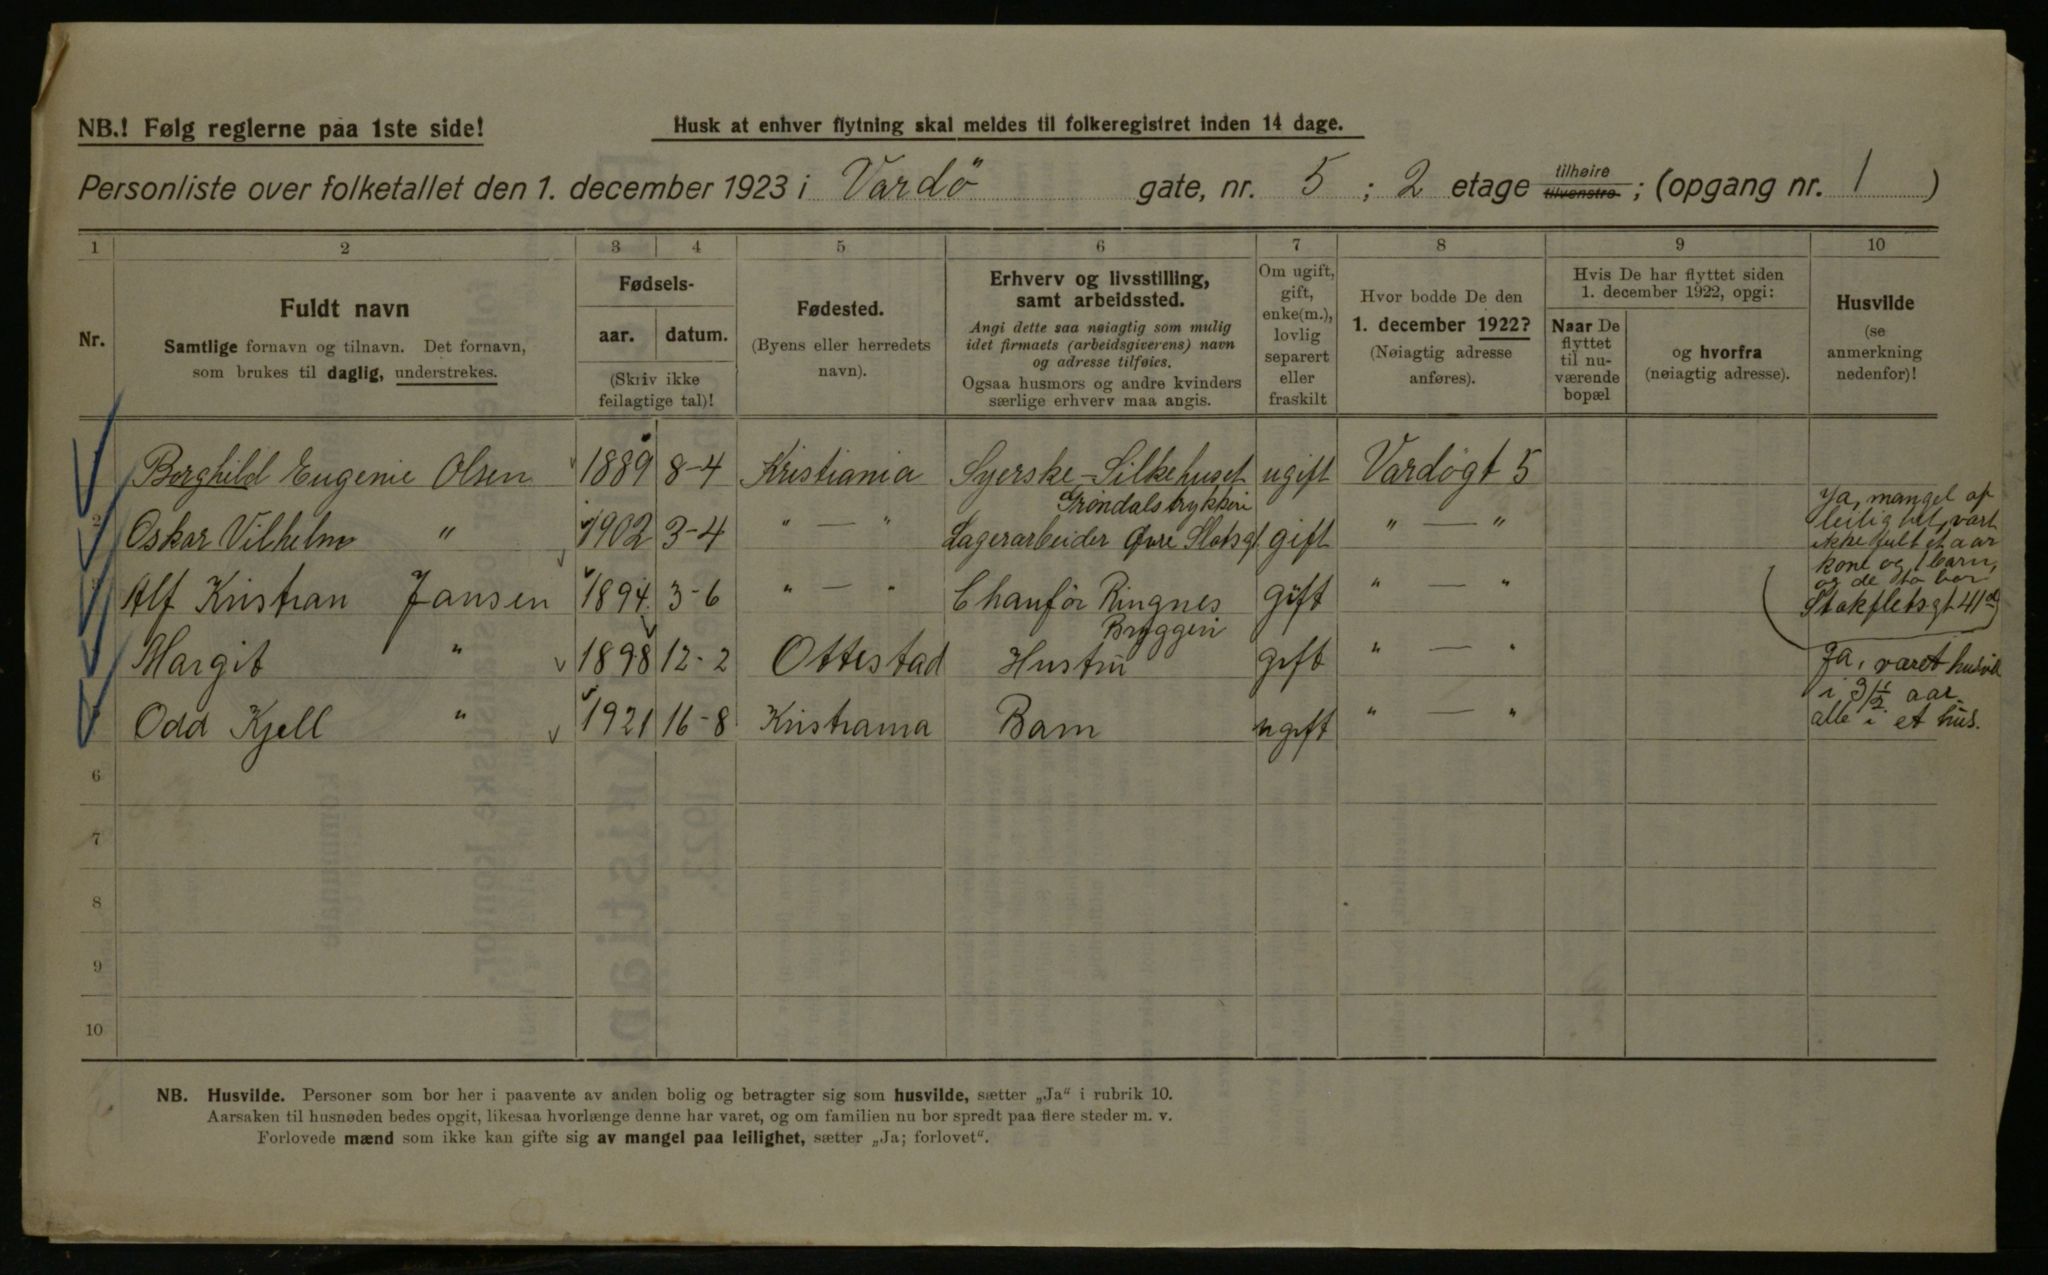 NB.! Følg reglerne paa 1ste side!
Husk at enhver flytning skal meldes til folkeregistret inden 14 dage.
Personliste over folketallet den 1. december 1923 i Vardö gate, nr. 5 ; 2 etage tilhøire tilvenstre ; (opgang nr. 1 )
1 2 3 4 5 6 7 8 9 10
Nr.
Fuldt navn
Samtlige fornavn og tilnavn. Det fornavn,
som brukes til daglig, understrekes.
Fødsels-
aar. datum.
(Skriv ikke
feilagtige tal)!
Fødested.
(Byens eller herredets
navn).
Erhverv og livsstilling,
samt arbeidssted.
Angi dette saa nøiagtig som mulig
idet firmaets (arbeidsgiverens) navn
og adresse tilføies.
Ogsaa husmors og andre kvinders
særlige erhverv maa angis.
Om ugift,
gift,
enke(m.),
lovlig
separert
eller
fraskilt
Hvor bodde De den
1. december 1922?
(Nøiagtig adresse
anføres).
Hvis De har flyttet siden
1. december 1922, opgi:
Naar De
flyttet
til nu-
værende
bopæl
og hvorfra
(nøiagtig adresse).
Husvilde
(se
anmerkning
nedenfor)!
Borghild Eugenie Olsen 1889 8-4 Kristiania Syerske - Silkehuset ugift Vardögt 5
2 Oskar Vilhelm " 1902 3-4 " — " Lagerarbeider Grøndals trykkeri Øvre Slotsgt gift " — "
Ja, mangel af
leilighet, vært
ikke fult et aar
kone og 1 barn,
og de to bor
Stokfletsgt 41
Alf Kristian Jansen 1894 3-6 " — " Chauför Ringnes Bryggeri gift " — "
Margit " 1898 12-2 Ottestad Hustru gift " — "
Ja, været husvil
i 3 1/2 aar
alle i et hus.
Odd Kjell " 1921 16-8 Kristiania Barn ugift " — "
6
7
8
9
10
NB. Husvilde. Personer som bor her i paavente av anden bolig og betragter sig som husvilde, sætter „Ja“ i rubrik 10.
Aarsaken til husnøden bedes opgit, likesaa hvorlænge denne har varet, og om familien nu bor spredt paa flere steder m. v.
Forlovede mænd som ikke kan gifte sig av mangel paa leilighet, sætter „Ja; forlovet“.